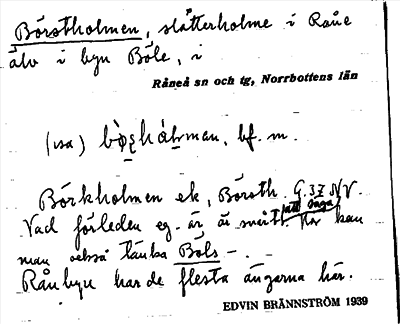 Börstholmen, slåtterholme i Råne
älv i byn Böle, i
Råneå sn och tg, Norrbottens län
(isa) bf. m.
Börkholmen ek, Börsth. G. 37 NV.
Vad förleden eg. är, är svårt att säga. Här kan
man också tänka Böls-.
Rånbyn hade flesta ängarna här.
EDVIN BRÄNNSTRÖM 1939